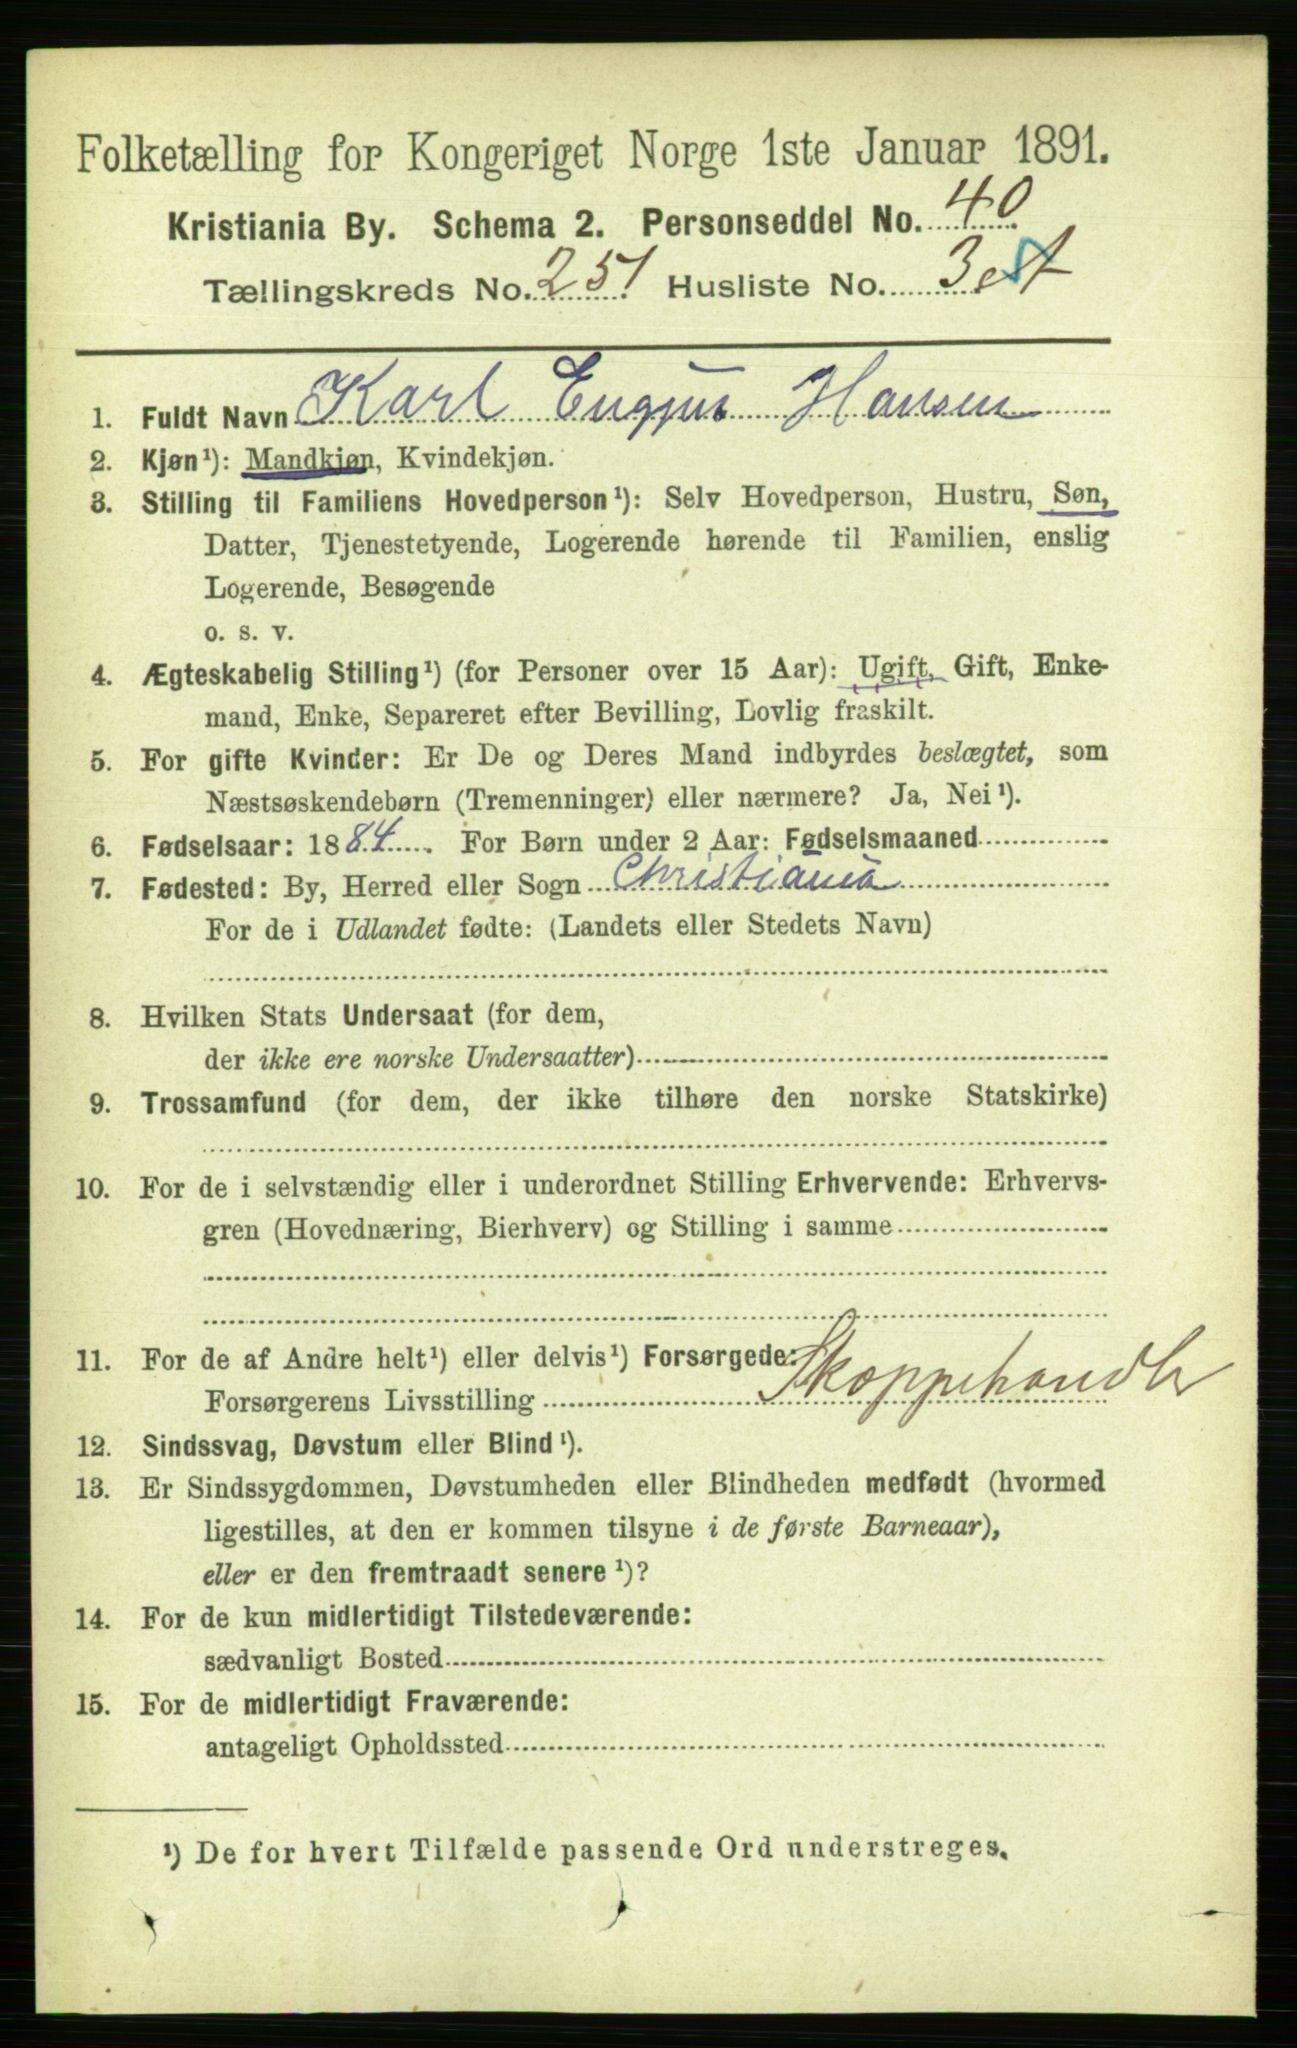 Folketælling for Kongeriget Norge 1ste Januar 1891.
Kristiania By. Schema 2. Personseddel No. 40
Tællingskreds No. 251 Husliste No. 3
1. Fuldt Navn Karl Hansen
2. Kjøn¹): Mandkjøn, Kvindekjøn.
3. Stilling til Familiens Hovedperson¹): Selv Hovedperson, Hustru, Søn,
Datter, Tjenestetyende, Logerende hørende til Familien, enslig
Logerende, Besøgende
o. s. v.
4. Ægteskabelig Stilling¹) (for Personer over 15 Aar): Ugift, Gift, Enke-
mand, Enke, Separeret efter Bevilling, Lovlig fraskilt.
5. For gifte Kvinder: Er De og Deres Mand indbyrdes beslægtet, som
Næstsøskendebørn (Tremenninger) eller nærmere? Ja, Nei¹).
6. Fødselsaar: 1884. For Børn under 2 Aar: Fødselsmaaned
7. Fødested: By, Herred eller Sogn Christiania
For de i Udlandet fødte: (Landets eller Stedets Navn)
8. Hvilken Stats Undersaat (for dem,
der ikke ere norske Undersaatter)
9. Trossamfund (for dem, der ikke tilhøre den norske Statskirke)
10. For de i selvstændig eller i underordnet Stilling Erhvervende: Erhvervs-
gren (Hovednæring, Bierhverv) og Stilling i samme
11. For de af Andre helt¹) eller delvis¹) Forsørgede:
Forsørgerens Livsstilling Skoppehandler
12. Sindssvag, Døvstum eller Blind¹).
13. Er Sindssygdommen, Døvstumheden eller Blindheden medfødt (hvormed
ligestilles, at den er kommen tilsyne i de første Barneaar),
eller er den fremtraadt senere¹)?
14. For de kun midlertidigt Tilstedeværende:
sædvanligt Bosted
15. For de midlertidigt Fraværende:
antageligt Opholdssted
¹) De for hvert Tilfælde passende Ord understreges.